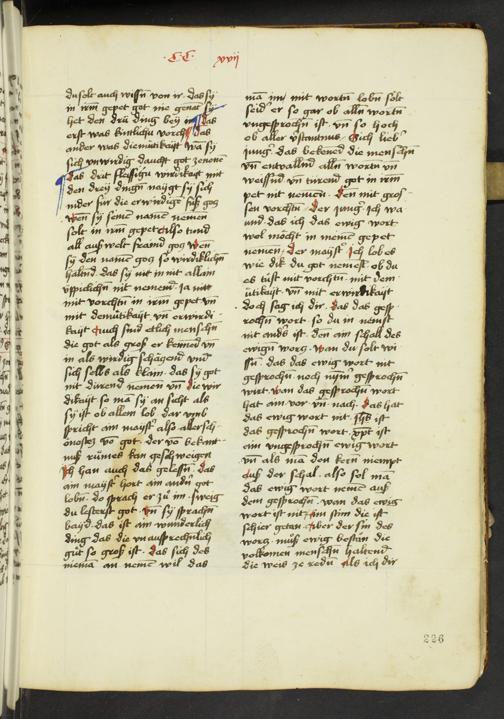 CC xvii
du solt auch wissn von ir das sy
in irm gepet got nie genat sy
het den drii ding bey in das
erst was kintlichu vorcht das
ander was diemütikayt wan sy
sich unwirdig daucht got zenene
das drit flessigu wirdikayt mit
den dreyn dingn naygt sy sich
nider für die erwirdige füss gotz
wen sy seinē namē nemen
solt in irm gepet also tund
all auf welt fraind gotz wen
sy den namē gotz so wirdiklichn
haltnd das sy nit in mit allain
üppiclichn nit nement ja mit
mit vorchtn in irm gepet vn
mit demütikayt vn erwirdi
kayt Auch sind etlich menschn
die got als gross er kennend vn
in als wirdig schätzent vnd
sich selbs als klain das sy got
nit dirend nemen vn die wir
dikayt so man sy an sicht als
sy ist ob allem lob dar vmb
spricht ain mayst also aller sch
önostez vo got der vo bekant
nuss rümes kan geschweigen
Ich han auch das gelessn das
ain mayst hort ain andn got
lobn do sprach er zu im sweig
du lesterst got vn sy sprachn
bayd das ist ain wunderlich
ding das die vnaussprechnlich
güt so gross ist das sich des
nieman an nemē wil das
man im mit wortn lobn solt
seid er so gar ob alln wortn
vngesprochn ist vn so hoch
ob aller vstantnuss Sich lieb
junger das bekenēt die menschn
vn entvallnd alln wortn vn
weissnd vn turend got in irm
pet nit nemen Den mit gros
sen vorchtn Der junger ich wa
wund das ich das ewig wort
wol möcht in meinē gepet
nemen Der mayst Ich lob es
wie dik du got nemest ob du
es tust mit vorchtn mit dem
ütikayt vn mit erwirdikayt
doch sag ich dir das das gesp
rochn wort so du in nennst
nit ands ist den ain schall des
ewign wortz wan du solt wi
ssn das das ewig wort nit
gesprochn noch nym gesprochn
wirt wan das gesprochn wort
hat ain vor vn nach das hat
das ewig wort nit ihs ist
das gesprochn wort xpc ist
ain vngesprochn ewig wort
vn als man den kern nempt
auss der schal also sol man
das ewig wort nemē auss
dem gesprochn wan das ewig
wort ist nit ain stim die ist
schier getan aber der sin des
wortz muss ewig bestan die
volkomen menschn haltend
die weis ze redn als ich dir
226